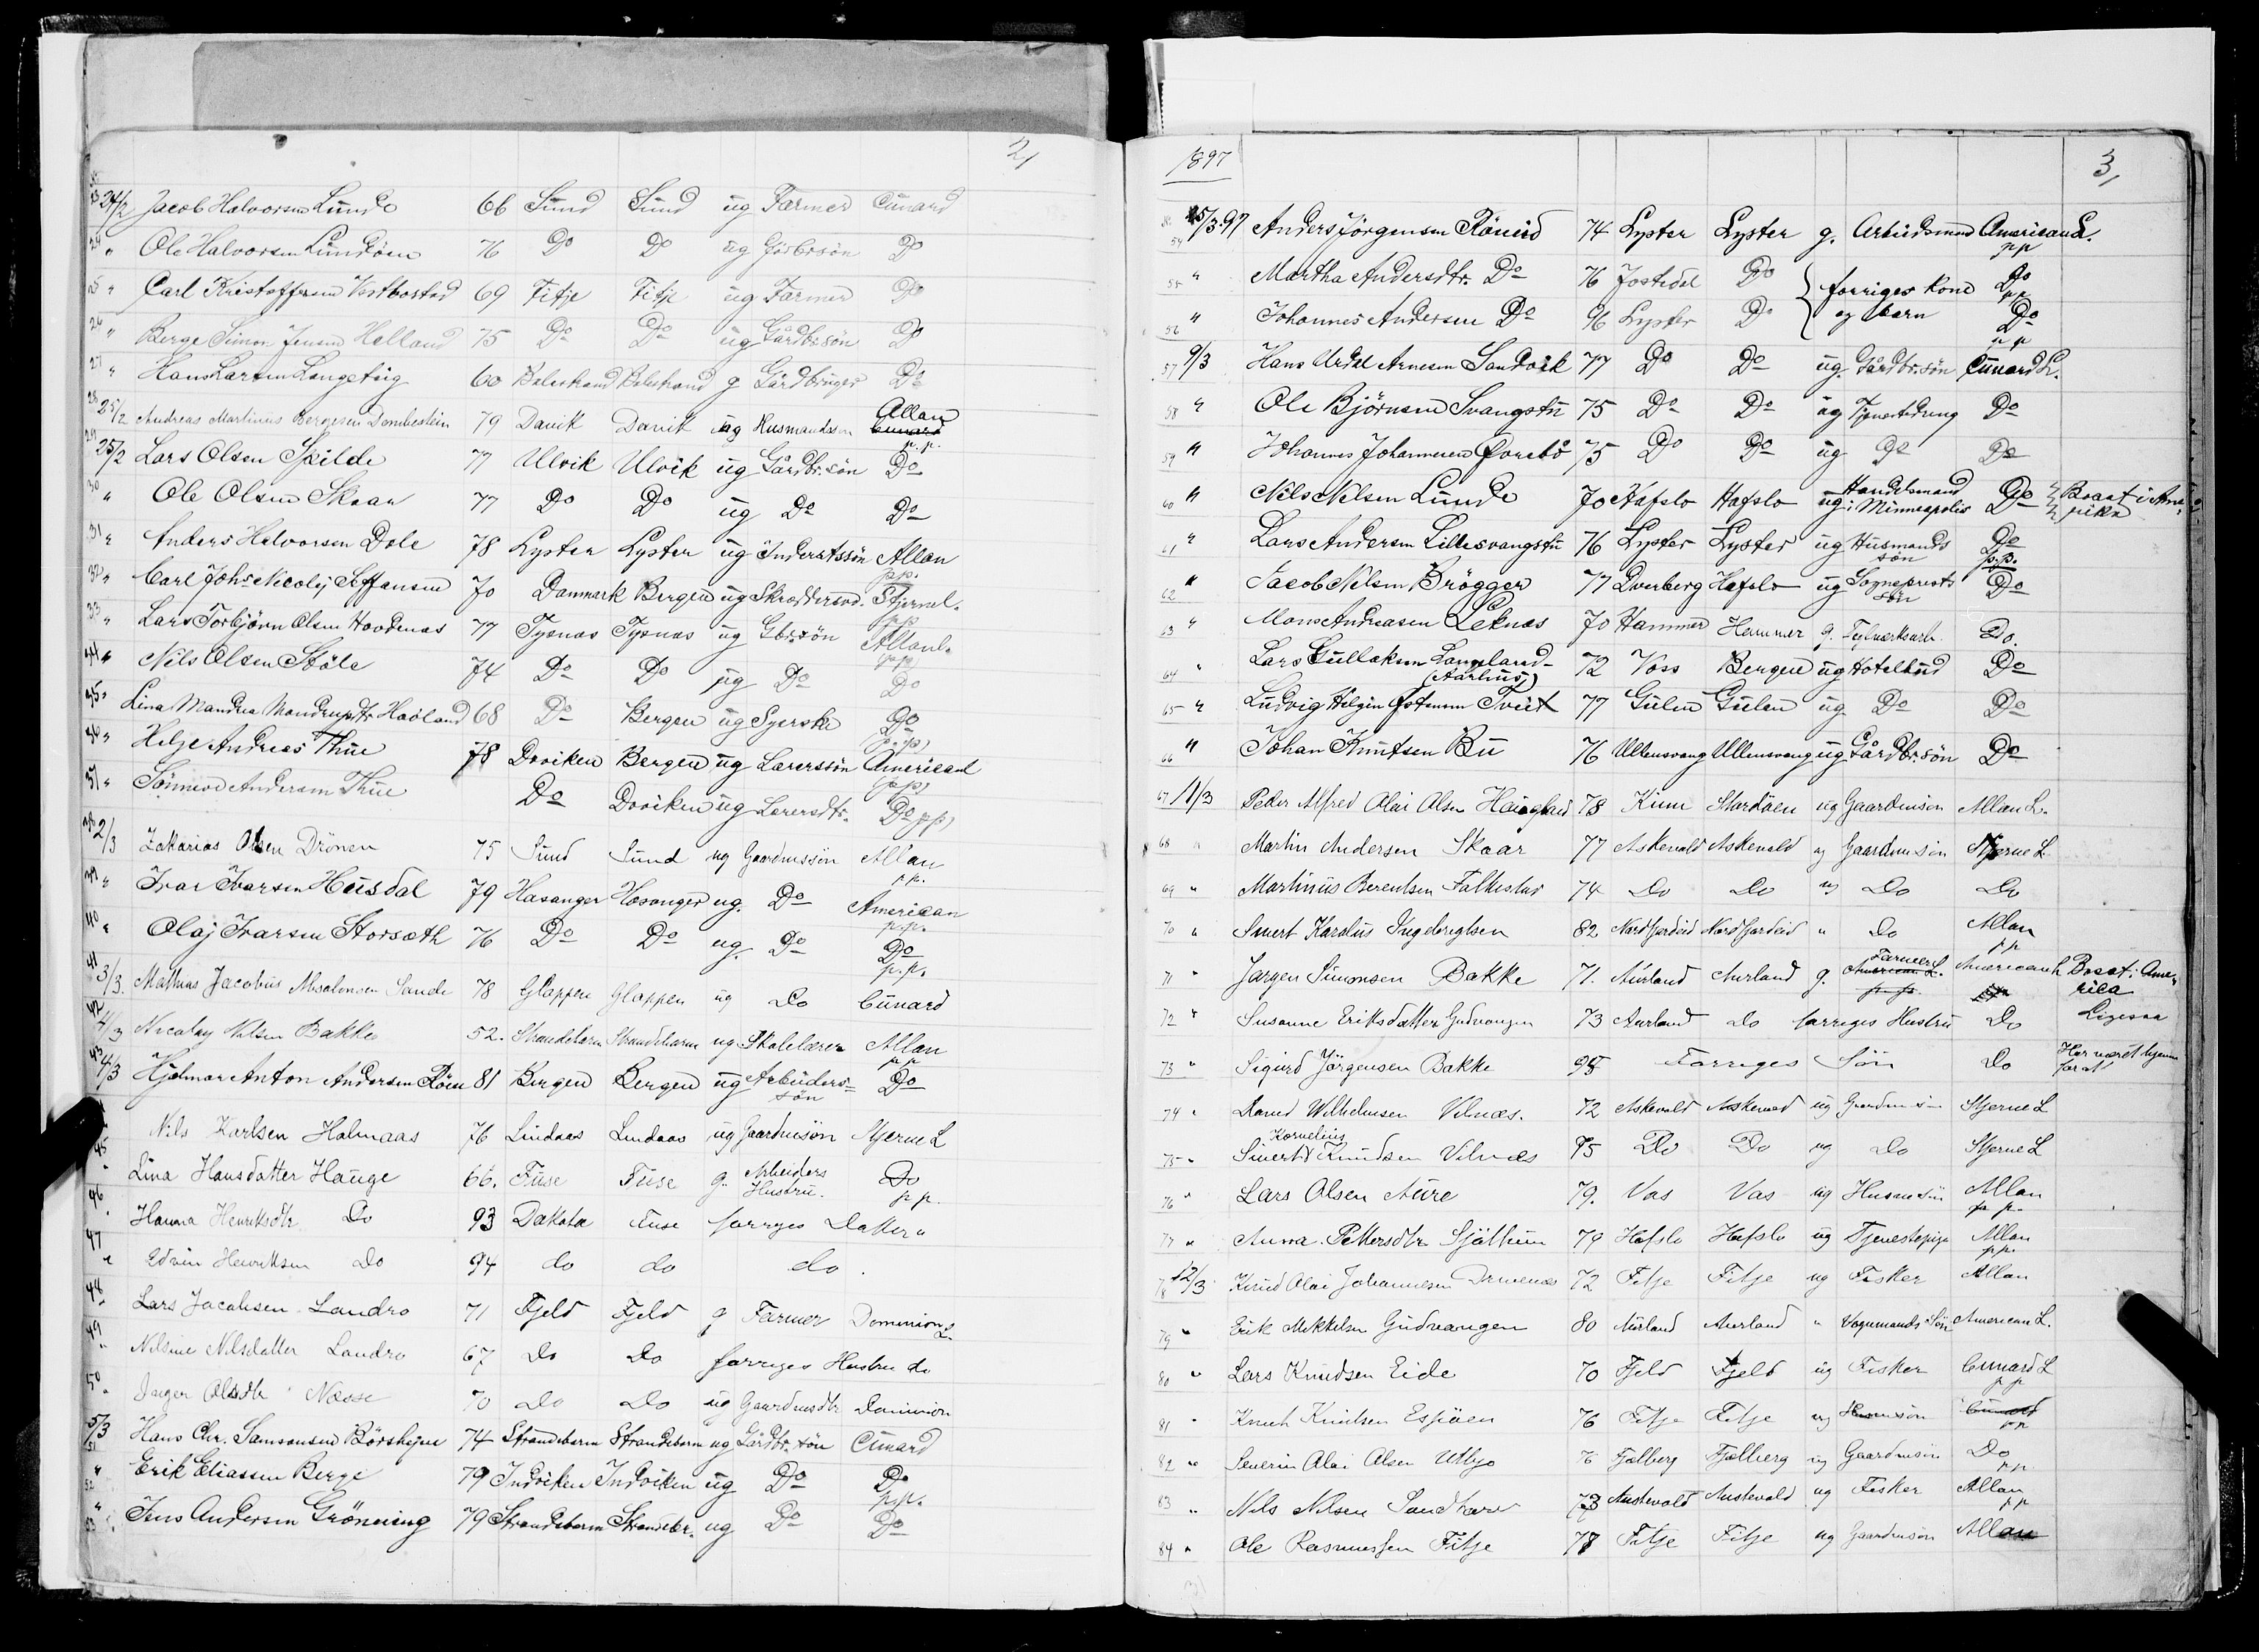 2,
23 24/2 Jacob Halvorsen Lunde 66 Sund Sund ug Farmer Cunard
24 " Ole Halvorsen Lundöen 76 Do Do ug Do
25 " Carl Kristoffersen Vestbostad 69 Fitje Fitje ug Farmer Do
26 " Berge Simon Jensen Helland 75 Do Do ug Gårdbr.sön Do
27 " Hans Larsen Longeteig 60 Balestrand Balestrand g Gårdbruger Do
28 25/2 Andreas Martinus Bergesen Dombestein 79 Davik Davik ug Husmandssön Allan Cunard p.p.
29 25/2 Lars Olsen Skilde 77 Ulvik Ulvik ug Gårdbr.sön Do
30 " Ole Olsen Skaar 77 Do Do ug Do Do
31 " Anders Halvorsen Dale 78 Lyster Lyster ug Inderstssön Allan p.p.
32 " Carl Johs Nicolij Steffansen 70 Danmark Bergen ug Skreddersvd. Stjernel. pp
33 " Lars Torbjörn Olsen Hovdenas 77 Tysnas Tysnas ug Gbr.sön Allanl. pp
34 " Nils Olsen Stöle 74 Do Do ug Do Do
35 " Lina Mandrea Mandrupsdtr. Haaland 68 Do Bergen ug Syerske Do p.p.
36 " Helje Andreas Thue 78 Doviken Bergen ug Lærerssön American p.p.
37 " Sönneve Andersen Thue Do Doviken ug Lærersdtr. Do pp
38 2/3 Zakarias Olsen Drönen 75 Sund Sund ug Gaardmssön Allan p.p.
39 " Ivar Ivarsen Husdal 79 Hosanger Hosanger ug. Do American p.p.
40 " Olaj Ivarsen Storsæth 76 Do Do ug. Do Do p.p.
41 3/3. Mathias Jacobus Absalonsen Sande 78 Gloppen Gloppen ug Do Cunard
42 4/3 Nicolay Nilsen Bakke 52. Strandebarm Strandebarm ug Skolelærer Allan pp
43 4/3 Hjalmar Anton Andersen Röen 81 Bergen Bergen ug Arbeiders-sön Do
Nils Karlsen Holmaas 76 Lindaas Lindaas ug Gaardmsön Stjerne L
45 " Lina Hansdatter Hauge 66. Fuse Fuse g. Arbeiders Hustru. Do pp.
46 " Hanna Henriksdtr Do 93 Dakota Fuse forriges Datter "
47 " Edvin Henriksen Do 94 do do do.
48 " Lars Jacobsen Landro 71 Fjeld Fjeld g Farmer Dominion L.
49 " Nilsine Nilsdatter Landro 67 Do Do forriges Hustru do
50 " Inger Olsdtr Næsse 70 Do Do ug Gaardmsdtr Dominion
5/3 51 Hans Chr. Samsonsen Börsheim 74 Strandebarm Strandebarm ug Gårdbr.sön Cunard
" 52 Erik Eliassen Berge 79 Indviken Indviken ug Do Do p.p.
" 53 Jens Andersen Gröneng 79 Strandebarm Strandebr. ug Do Do
1897
3,
54 5/3.97 Anders Jörgensen Röneid 74 Lyster Lyster g. Arbeidsmand American L. pp
55 " Martha Andersdtr. Do 76 Jostedal Do } forriges kone Do pp
56 " Johannes Andersen Do 96 Lyster Do og barn Do pp
57 9/3 Hans Urdal Arnesen Sandvik 77 Do Do ug. Gårdbr.sön Cunard L.
58 " Ole Björnsen Svangstu 75 Do Do ug Tjenestedreng Do
59 " Johannes Johannesen Qvrebö 75 Do Do ug Do Do
60 " Nils Nilsen Lunde 70 Hafslo Hafslo ug Handelsmand i Minneapolis Do Bosat i Amerika
61 " Lars Andersen Lillesvangstu 76 Lyster Lyster ug Husmandssön Do p.p.
62 " Jacob Nilsen Brögger 77 Dverberg Hafslo ug Sogneprestssön Do
63 " Mons Andreasen Leknæs 70 Hammer Hammer g. Teglverksarb. Do.
64 " Lars Gullaksen Langeland- (Aarhus) 72 Voss Bergen ug Hotelbud Do
65 " Ludvig Helgin Östensen Tveit 77 Gulen Gulen ug Do Do
66 " Johan Knutsen Bu 76 Ullensvang Ullensvang ug Gårdbr.sön Do
67 11/3 Peder Alfred Olai Olsen Haugland 78 Kinn Stordöen ug Gaardmsön Allan L.
68 " Martin Andersen Skaar 77 Askevold Askevold ug Gaardmsön Stjerne L
69 " Martinus Berentsen Folkestad 74 Do Do ug Do Do
70 " Sivert Karolus Ingebrigtsen 82 Nordfjordeid Nordfjordeid " Do Allan pp
71 " Jørgen Simonsen Bakke 71. Aurland Aurland g. Farmer American L. p.p. American L Bosat i Amerika
72 " Susanne Eriksdatter Gudvangen 73 Aurland Do forriges Hustru Do Ligesaa
73 " Sigurd Jörgensen Bakke 95 Forriges Sön Do Har været hjemme for at
74 " David Wilhelmsen Vilnæs. 72 Askevold Askevold ug Gaardmsön Stjerne L
75 " Sivert Kornelius Knudsen Vilnæs 75 Do Do ug Do Stjerne L
76 " Lars Olsen Aure 79. Vos Vos ug Husmsön Allan p.p.
77 " Anna Pettersdtr. Sjöthun 79 Hafslo Hafslo ug Tjenestepige Allan pp.
78 12/3 Knud Olai Johannesen Drivenes 72 Fitje Fitje ug Fisker Allan
79 " Erik Mikkelsen Gudvangen 80 Aurland Aurland " Vognmands Søn American L.
80 " Lars Knudsen Eide 70 Fjeld Fjeld ug Fisker Cunard L pp
81 " Knut Knutsen Espöen 76 Fitje Fitje ug Husmsön Cunard pp
82 " Severin Olai Olsen Utbjo 76 Fjelberg Fjelberg ug Gaardmsön Do pp
83 " Nils Nilsen Sandtorv 73 Austevold Austevold ug Fisker Allan pp
84 " Ole Rasmussen Fitje 78 Fitje Fitje ug Gaardmsön Allan